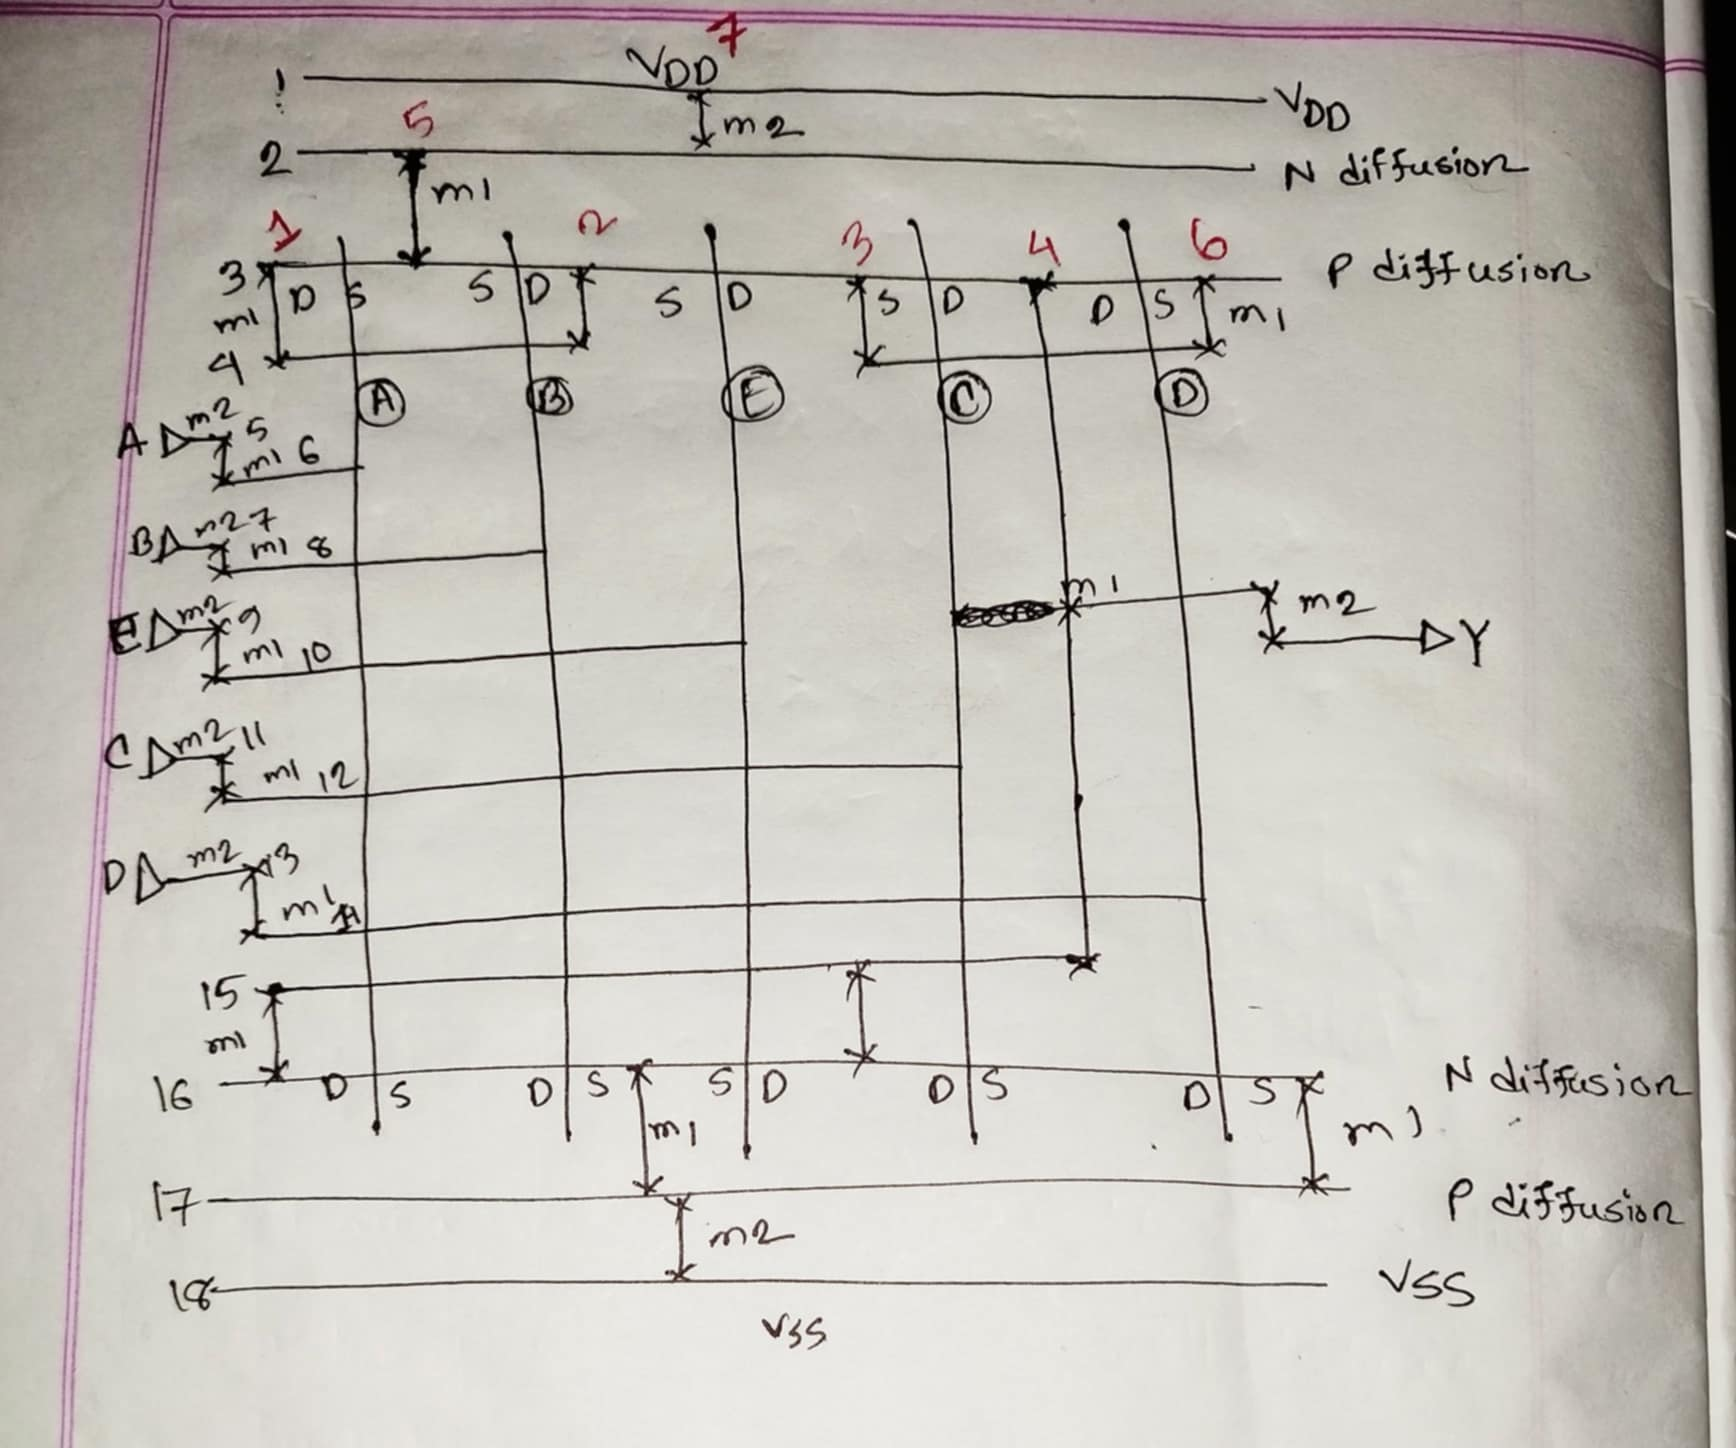 7
VDD
1 VDD
5 m2
2 N diffusion
m1
1 2 3 4 6
3 P diffusion
D S S D S D S D D S
m1 m1
4
A B E C D
A m2 5
m1 6
B m2 7
m1 8
m1
E m2 9 m2
m1 10 Y
C m2 11
m1 12
D m2 13
m1
15
m1
16 D S D S S D D S D S N diffusion
m1 m1
17 P diffusion
m2
18 VSS
VSS